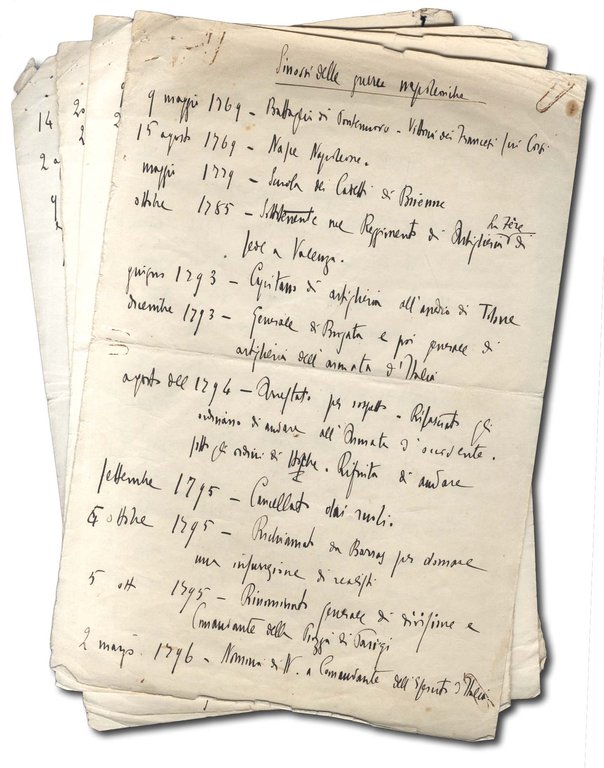 Sinossi delle guerre napoleoniche
9 maggio 1769 – Battaglia di Pontenuovo – Vittoria dei Francesi sui Corsi
15 agosto 1769 – Nasce Napoleone.
maggio 1779 – Scuola dei Cadetti di Brienne
ottobre 1785 – Sottotenente nel Reggimento di Artiglieria La Fère di
sede a Valenza.
giugno 1793 – Capitano di artiglieria all'assedio di Tolone
dicembre 1793 – Generale di Brigata e poi generale di
artiglieria dell'armata d'Italia
agosto del 1794 – Arrestato per sospetto. Rilasciato gli
ordinano di andare all'Armata d'occidente.
sotto gli ordini di Hoche. Rifiuta di andare
settembre 1795 – Cancellato dai ruoli.
5 ottobre 1795 – Richiamato da Barras per domare
una insurrezione di realisti
5 ott 1795 – Rinominato generale di divisione e
Comandante della Piazza di Parigi
2 marzo 1796 – Nomina di N. a Comandante dell'Esercito d'Italia
14
2 a
9
20
2
2
9